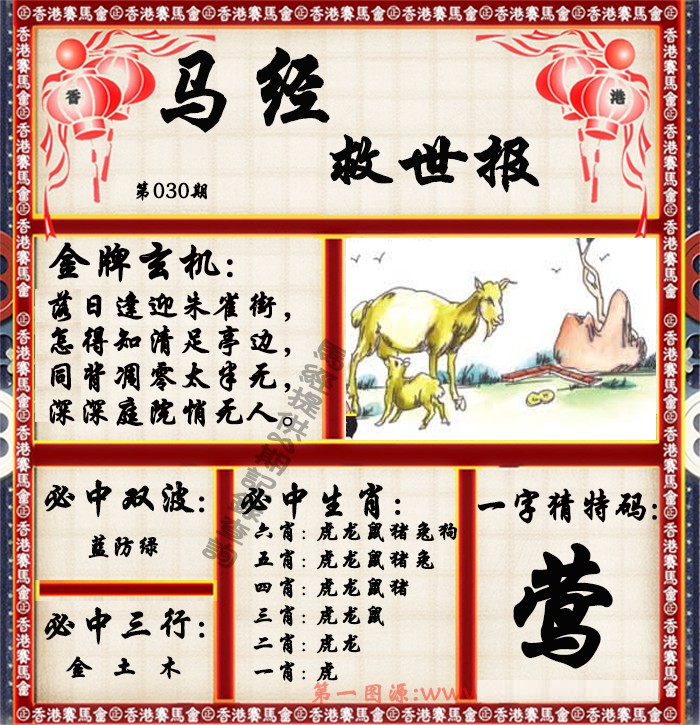 香港賽馬會 香港賽馬會 香港賽馬會 香港賽馬會 香港賽馬會 香港賽馬會
香
港
马经
救世报
第030期
金牌玄机:
落日逢迎朱雀街,
怎得知清足亭边,
同背凋零太半无,
深深庭院悄无人。
必中双波:
蓝防绿
必中三行:
金 土 木
必中生肖:
六肖:虎龙鼠猪兔狗
五肖:虎龙鼠猪兔
四肖:虎龙鼠猪
三肖:虎龙鼠
二肖:虎龙
一肖:虎
一字猜特码:
莺
第一图源:www